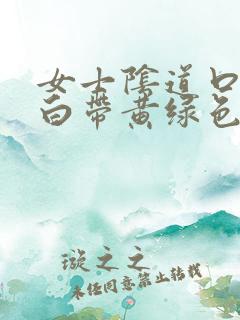 女士陰道口
白帶黄绿色
璇之之
未经同意禁止转载